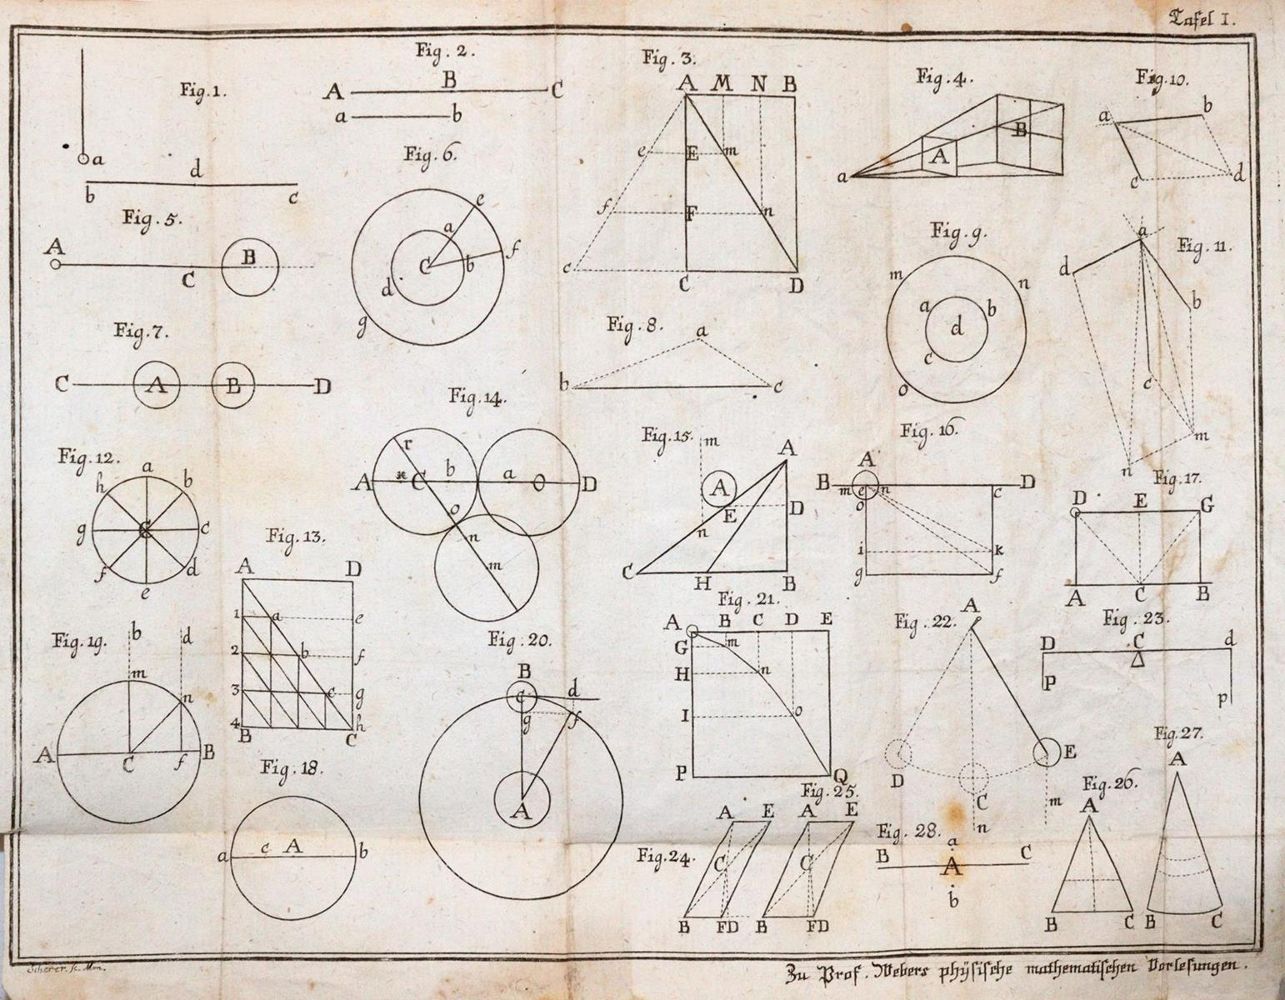 Tafel I.
Fig. 1.
a
b d c
Fig. 2.
A B C
a b
Fig. 3.
A M N B
e E m
f F n
c C D
Fig. 4.
a A B
Fig. 10.
a b
c d
Fig. 5.
A C B
Fig. 6.
e
a f
C b
d
g
Fig. 9.
m n
a b
d
c
o
Fig. 11.
a
d b
c
m
n
Fig. 7.
C A B D
Fig. 8.
a
b c
Fig. 14.
r
A C b a O D
o
n
m
Fig. 15.
m A
A
E D
n
C H B
Fig. 16.
A
B m e n c D
o
i k
g f
Fig. 17.
D E G
A C B
Fig. 12.
a
h b
g C c
f d
e
Fig. 13.
A D
1 a e
2 b f
3 c g
4 B C h
Fig. 19.
b d
m n
A C f B
Fig. 20.
B
C d
g f
A
Fig. 21.
A B C D E
G m
H n
I o
P Q
Fig. 22.
A
D C E
m
n
Fig. 23.
D C d
P p
Fig. 18.
a c A b
Fig. 24.
A E
C
B F D
Fig. 25.
A E
C
B F D
Fig. 28.
a
B A C
b
Fig. 26.
A
B C
Fig. 27.
A
B C
Scherer sc. Mon.
Zu Prof. Webers physische mathematischen Vorlesungen.